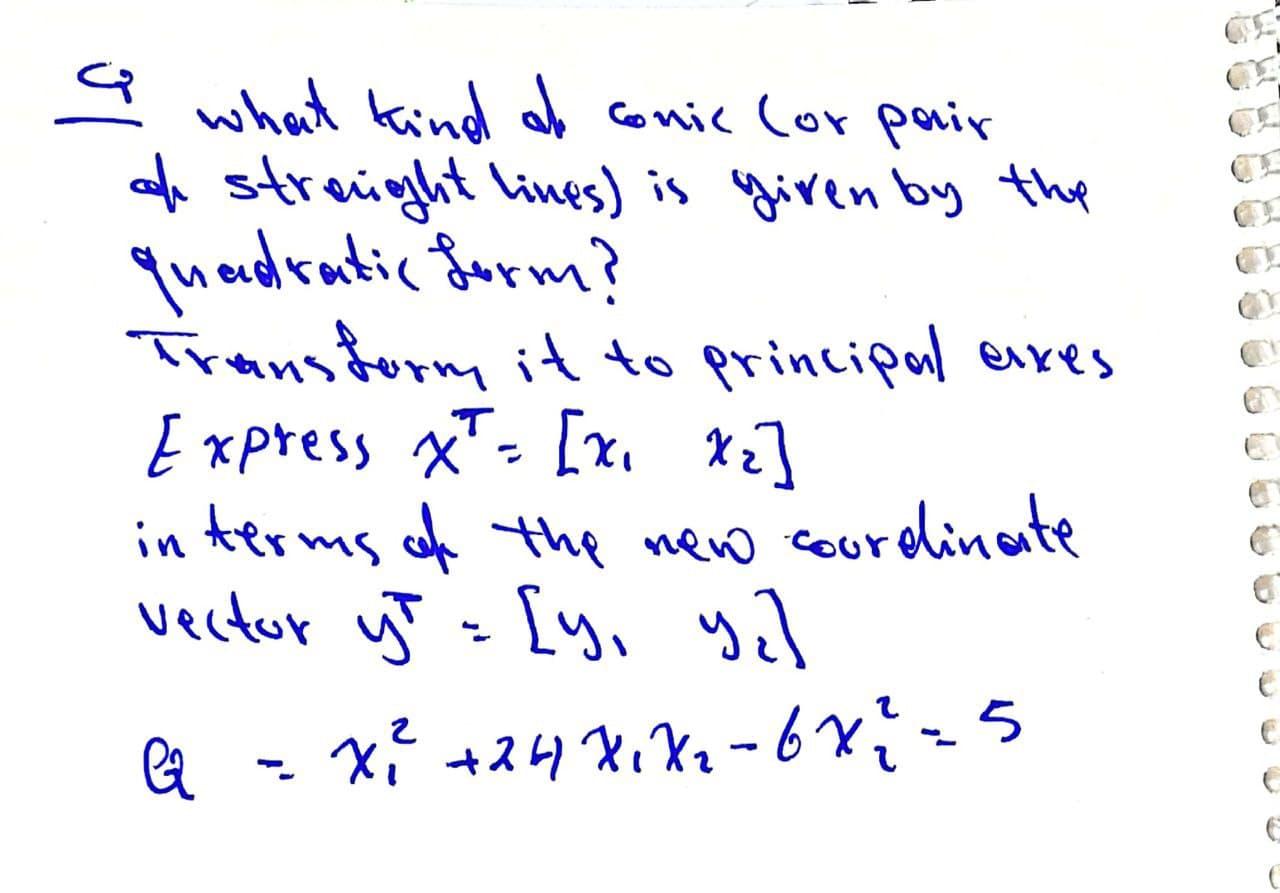 Q what kind of conic (or pair
of straight lines) is given by the
quadratic form?
Transform it to principal axes
Express x^T = [x₁ x₂]
in terms of the new coordinate
vector y^T = [y₁ y₂]
Q = x₁² + 24 x₁x₂ - 6x₂² = 5